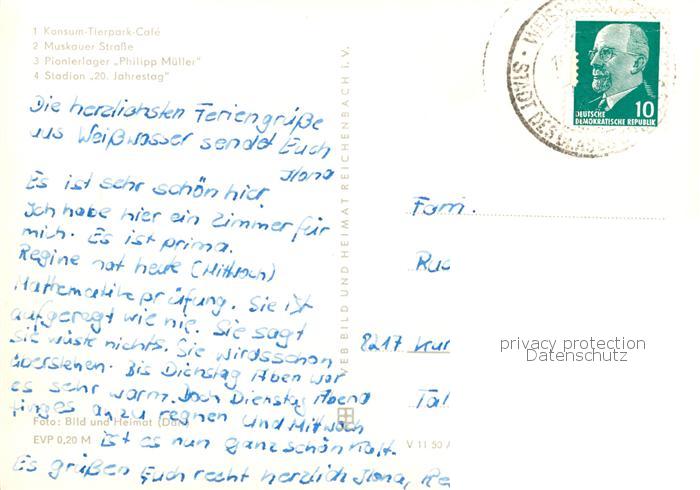 1 Konsum-Tierpark-Café
2 Muskauer Straße
3 Pionierlager „Philipp Müller"
4 Stadion „20. Jahrestag"
Die herzlichsten Feriengrüße
aus Weißwasser sendet Euch
Ilona
Es ist sehr schön hier.
Ich habe hier ein Zimmer für
mich. Es ist prima.
Regine hat heute (Mittwoch)
Mathematikprüfung. Sie ist
aufgeregt wie nie. Sie sagt
sie wüste nichts. Sie wirds schon
überstehen. Bis Dienstag Aben war
es sehr warm. Doch Dienstag Abend
finges an zu regnen und Mittwoch
ist es nun ganz schön kalt.
Es grüßen Euch recht herzlich Ilona, Re
Foto: Bild und Heimat
EVP 0,20 M
V 11 50
VEB BILD UND HEIMAT REICHENBACH i. V.
DEUTSCHE
DEMOKRATISCHE REPUBLIK
10
STADT DES
Fam.
8217 Kur
Tal
privacy protection
Datenschutz